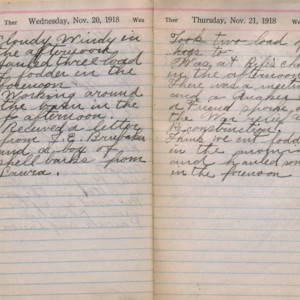 Ther Wednesday, Nov. 20, 1918 Wea
Cloudy Windy in
the afternoon
hauled three load
of fodder in the
forenoon
Working around
the barn in the
afternoon.
Recieved a letter
from J. E. Brubaker
and a box of
spell barks from
Laura.
Ther Thursday, Nov. 21, 1918 Wea
Took two load of
hogs to
Was at church
in the afternoon
There was a meeting
a Friend spoke
the War relief
Reconstruction.
we cut fodder
in the morning
and hauled som
in the forenoon